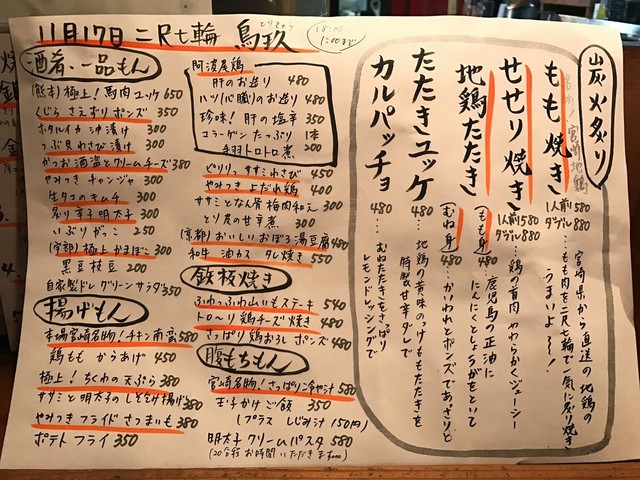 11月17日 二尺七輪 鳥玖
とりきゅう
18:00~
1:00まで
酒肴、一品もん
(熊本)極上!馬肉ユッケ 650
くじら さえずり ポンズ 350
ホタルイカ 沖漬け 300
つぶ貝わさび漬け 300
かつお酒盗とクリームチーズ 380
やみつき チャンジャ 300
生タコのキムチ 300
炙り辛子明太子 300
いぶりがっこ 250
(宇部)極上 かまぼこ 300
黒豆枝豆 200
自家製ドレ グリーンサラダ 350
揚げもん
本場宮崎名物!チキン南蛮 580
鶏もも からあげ 450
極上!ちくわの天ぷら 380
ササミと明太子のしそ包み揚げ 380
やみつき フライド さつまいも 380
ポテト フライ 350
阿波尾鶏
肝のお造り 480
ハツ(心臓)のお造り 480
珍味!肝の塩辛 350
コラーゲン たっぷり 1本
手羽トロトロ煮 200
ぐりりっ ササミわさび 450
やみつき よだれ鶏 400
ササミとなん骨 梅肉和え 300
とり皮の甘辛煮 300
(京都)おいしいおぼろ湯豆腐 480
和牛 油カス タレ焼き 550
鉄板焼き
ふわふわ山いもステーキ 540
トロ〜リ 鶏チーズ焼き 480
さっぱり 鶏おろし ポンズ 480
腹もちもん
宮崎名物!さっぱり冷や汁 580
玉子かけご飯 350
(プラス しじみ汁 150円)
明太子クリームパスタ 580
(20分程お時間いただきます)
炭火炙り
名物!宮崎地鶏
もも焼き 1人前 580 ダブル 880
…宮崎県から直送の地鶏の
もも肉を二尺七輪で一気に炙り焼き
うまいよ〜!
せせり焼き 1人前 580 ダブル 880
…鶏の首肉 やわらかくジューシー
地鶏たたき
(もも身) 480 …鹿児島の正油に
にんにくとしょうがをといて
(むね身) 480 …かいわれとポンズであっさりと
たたきユッケ 480 …地鶏の黄味のっけももたたきを
特製甘辛ダレで
カルパッチョ 480 …むねたたきをさっぱり
レモンドレッシングで